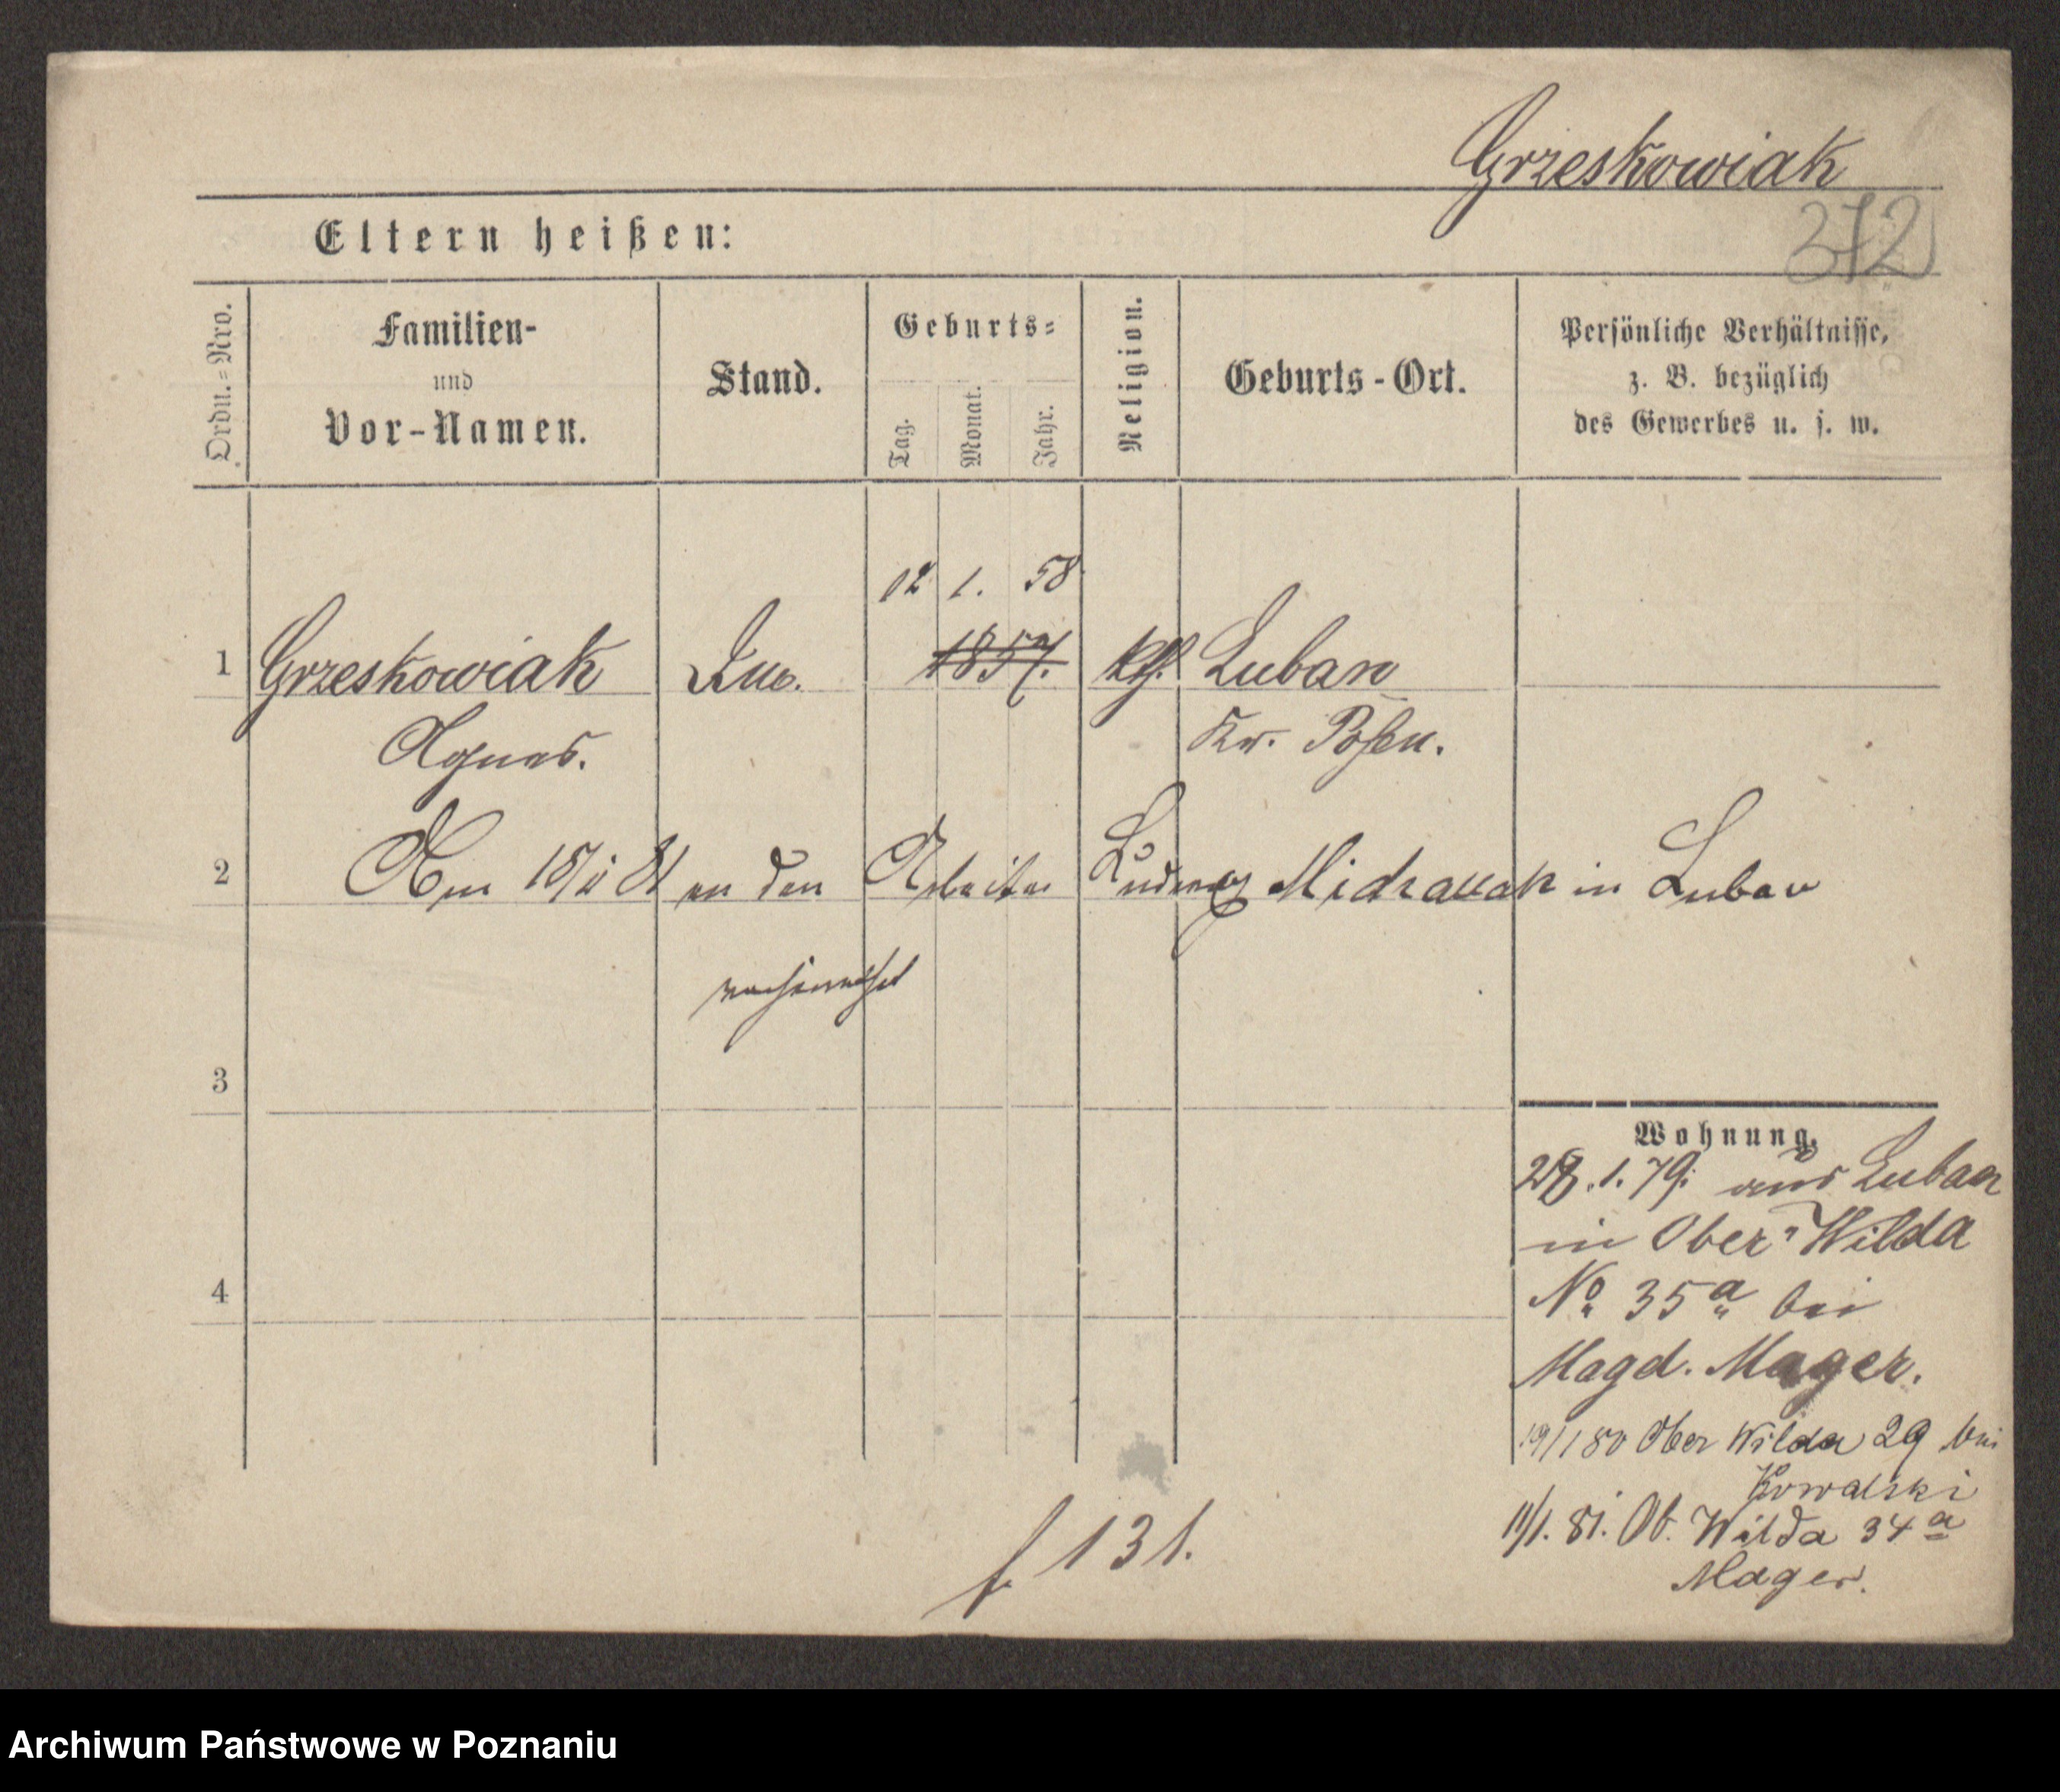 Grzeskowiak
372
Eltern heißen:
Ordn.=Nro.
Familien-
und
Vor-Namen.
Stand.
Geburts=
Tag.
Monat.
Jahr.
Religion.
Geburts-Ort.
Persönliche Verhältnisse,
z. B. bezüglich
des Gewerbes u. s. w.
12 1. 58
1 Grzeskowiak 1857. kth. Luban
Agnes. Kr. Posen.
2 Am 15/ 81 an den Arbeiter Ludwig in Luban
3
Wohnung.
28.1.79. aus Luban
in Ober-Wilda
4
No 35a bei
Magd. Mager.
19/1 80 Ober Wilda 29 bei
Kowalski
11/1. 81. Ob. Wilda 34a
Mager.
f. 131.
Archiwum Państwowe w Poznaniu